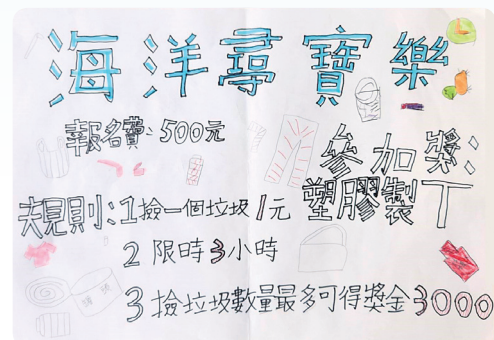 海洋尋寶樂
報名費:500元
參加獎:
塑膠製T
規則:1撿一個垃圾1元
2 限時3小時
3 撿垃圾數量最多可得獎金3000